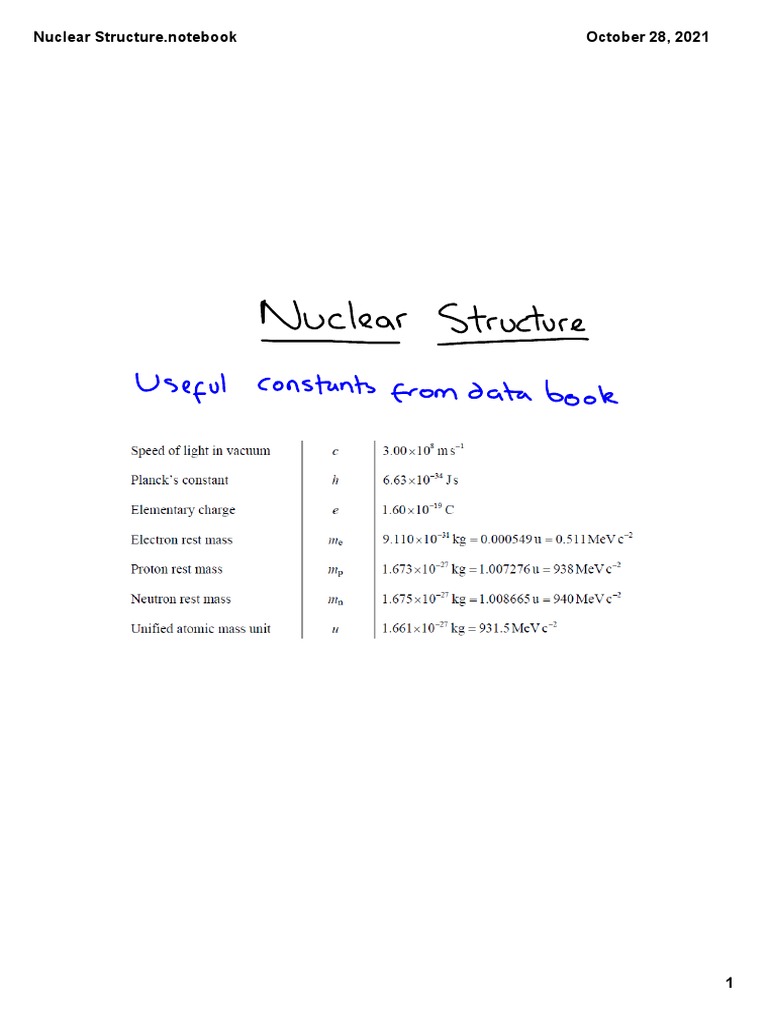 Nuclear Structure.notebook October 28, 2021
Nuclear Structure
Useful constants from data book
Speed of light in vacuum c 3.00×10⁸ m s⁻¹
Planck's constant h 6.63×10⁻³⁴ J s
Elementary charge e 1.60×10⁻¹⁹ C
Electron rest mass mₑ 9.110×10⁻³¹ kg = 0.000549 u = 0.511 MeV c⁻²
Proton rest mass mₚ 1.673×10⁻²⁷ kg = 1.007276 u = 938 MeV c⁻²
Neutron rest mass mₙ 1.675×10⁻²⁷ kg = 1.008665 u = 940 MeV c⁻²
Unified atomic mass unit u 1.661×10⁻²⁷ kg = 931.5 MeV c⁻²
1